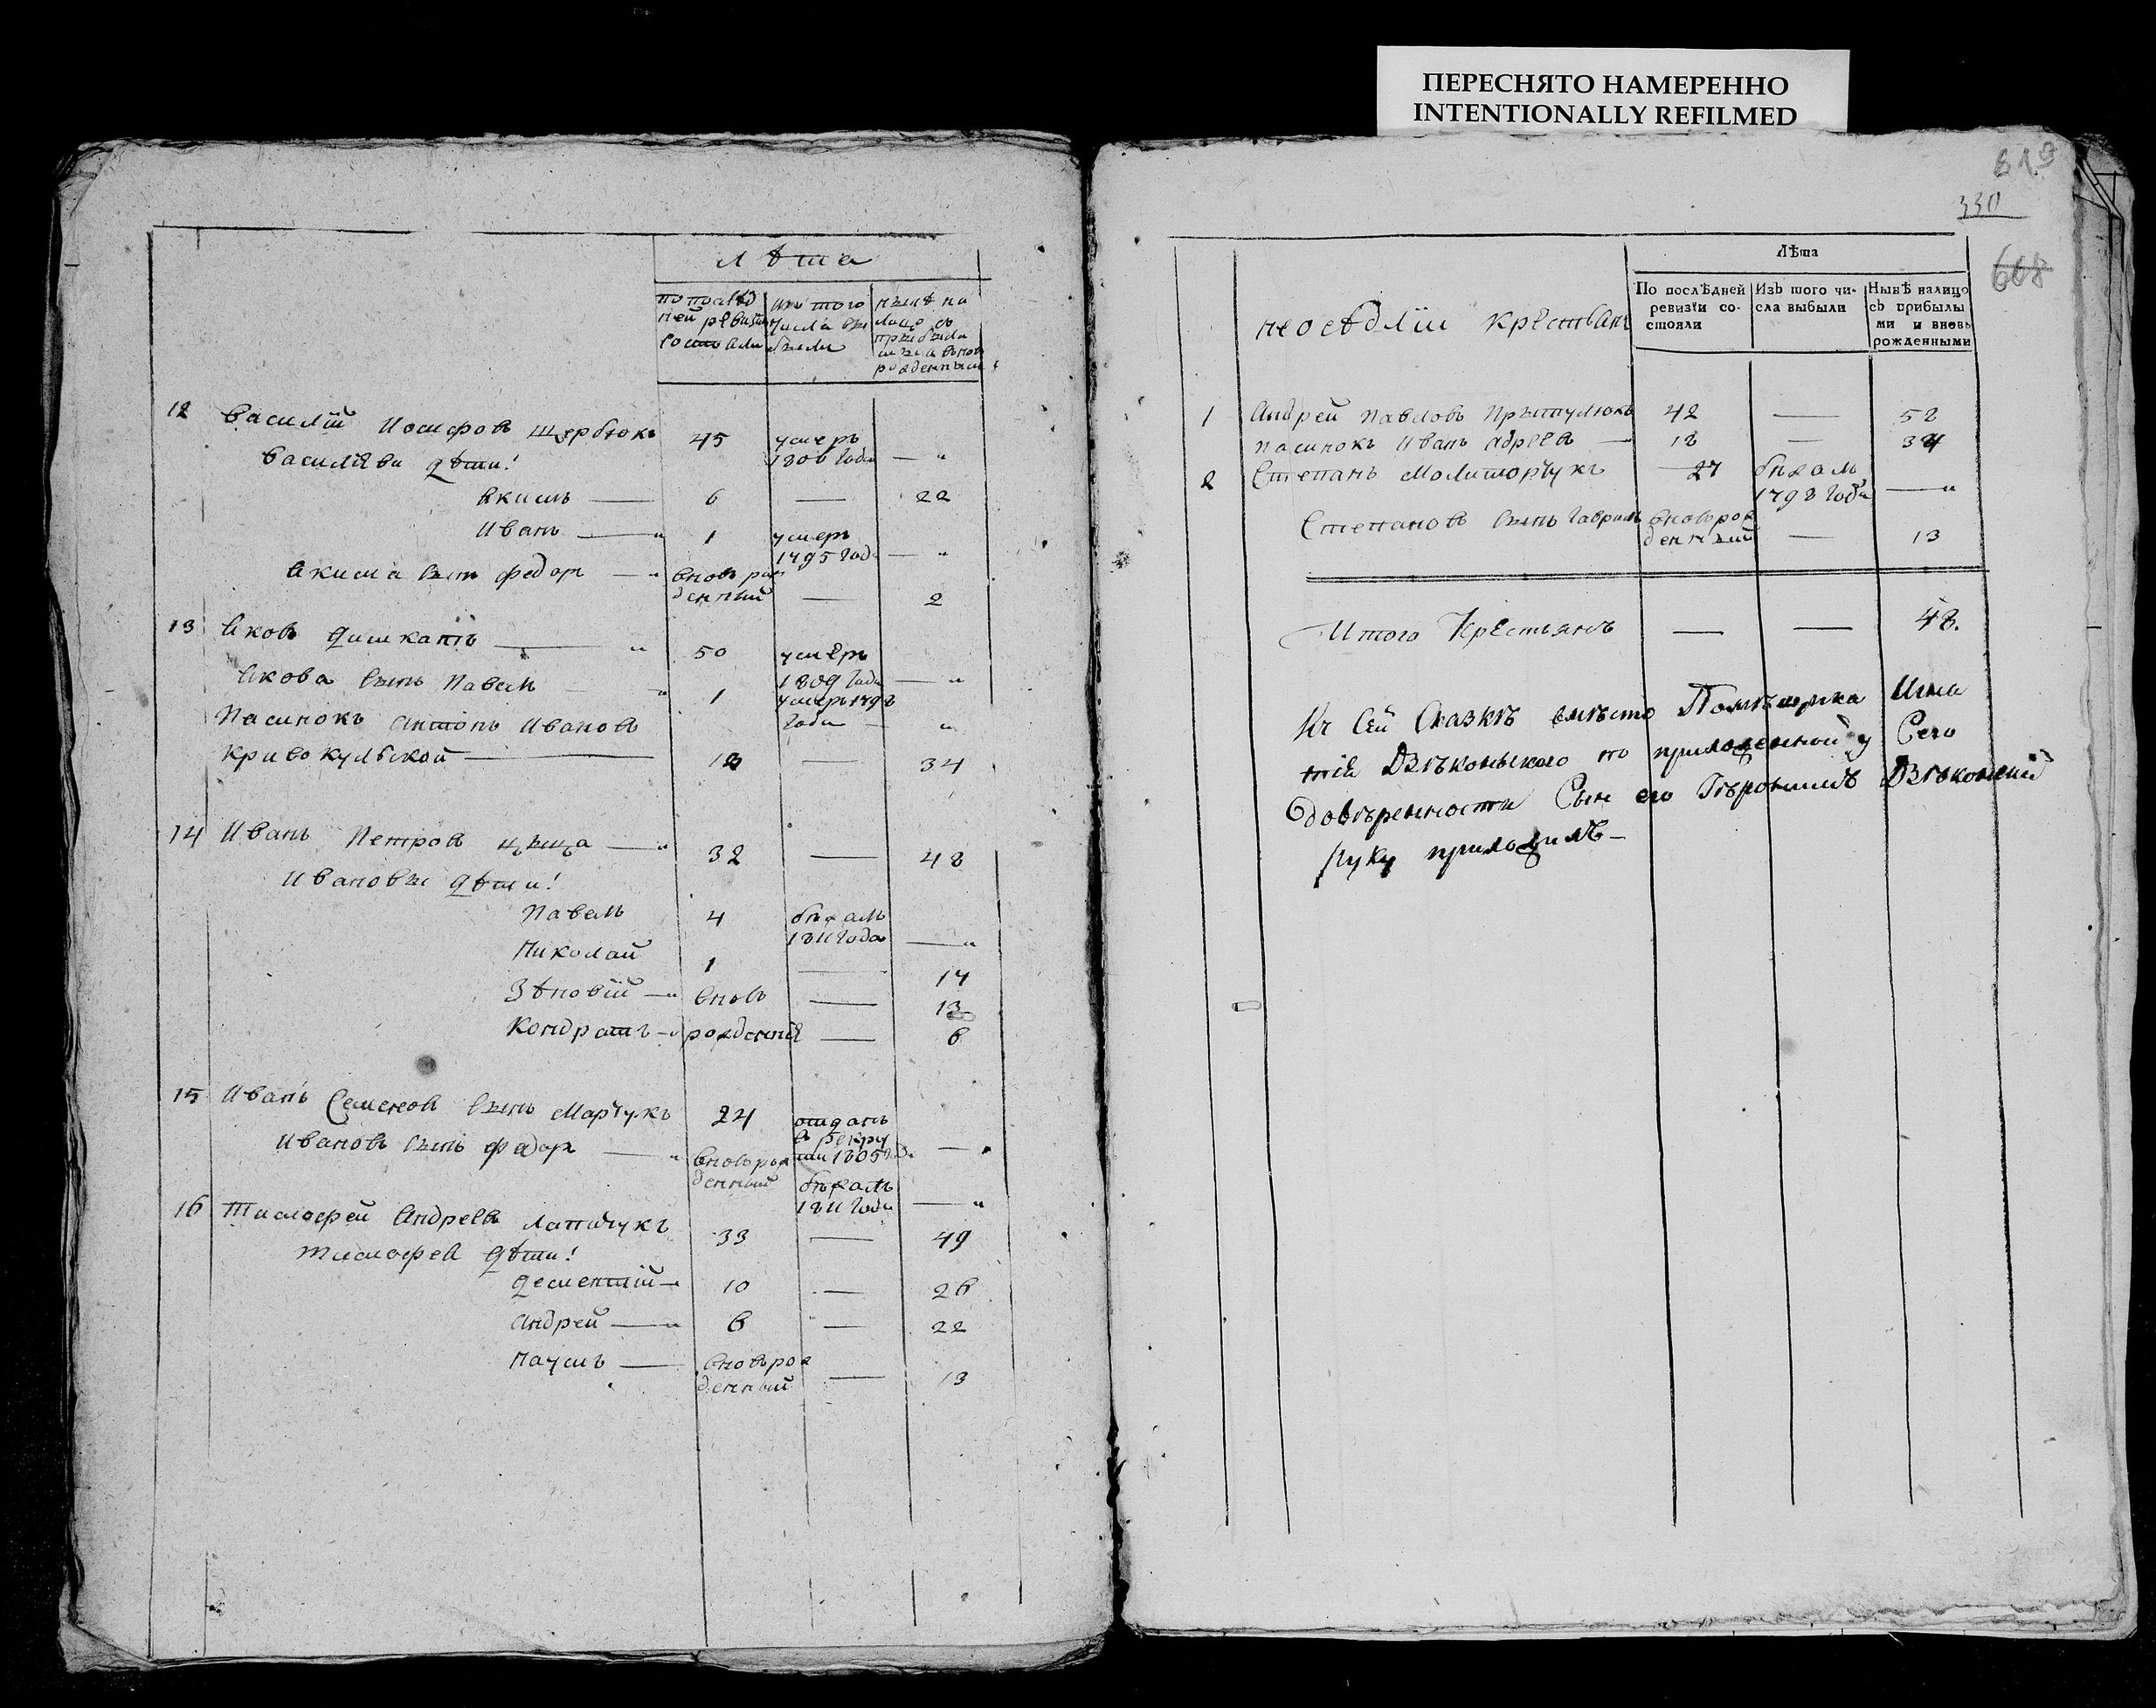 ПЕРЕСНЯТО НАМЕРЕННО
INTENTIONALLY REFILMED
лѣта
по послѣд изъ того нынѣ на
ней ревизіи числа вы лицо съ
состояли были прибыли
ми и вновь
рожденными
12 Василій Иосифовъ Щербюкъ 45 умеръ
1806 года — "
Василіеви дѣти!
Якимъ — 6 — 22
Иванъ — " 1 умеръ
1795 года — "
Якима сынъ Федоръ — " вновь рож
денный — 2
13 Яковъ Дишкантъ — " 50 умеръ
1809 года — "
Якова сынъ Павелъ — " 1 умеръ 1798
года — "
Пасинокъ Антонъ Ивановъ
Кривокульской — 18 — 34
14 Иванъ Петровъ — " 32 — 48
Ивановы дѣти!
Павелъ 4 бѣжалъ
1811 года — "
Николай 1 — 17
Зѣновій — " вновь — 13
Кондратъ — " рожденній — 6
15 Иванъ Семеновъ сынъ Марчукъ 24 отданъ
в рекру
ти 1805 года — "
Ивановъ сынъ Федоръ — " вновь рож
денный бѣжалъ
1811 года — "
16 Тимофей Андреевъ Лапчукъ 33 — 49
Тимофея дѣти!
Дементій — 10 — 26
Андрей — " 6 — 22
Наумъ — вновь рож
денный — 13
330
608
Лѣта
По послѣдней Изъ того чи- Нынѣ налицо
ревизіи со- сла выбыли съ прибылы
стояли ми и вновь
рожденными
неосѣдліи крестьянъ
1 Андрей Павловъ 42 — 58
пасинокъ Иванъ Адреевъ — 18 — 34
2 Степанъ Молиторчукъ — 27 бѣжалъ
1798 года — "
Степановъ сынъ Гаврилъ вновь рож
денный — 13
Итого Крестьянъ — — 48.
Къ Сей Сказкѣ вмѣсто Помѣщика Игна
тія Дзѣконьского по приложенной у Сего
довѣренности Сын его Гѣронимъ Дзѣконский
руку приложилъ —